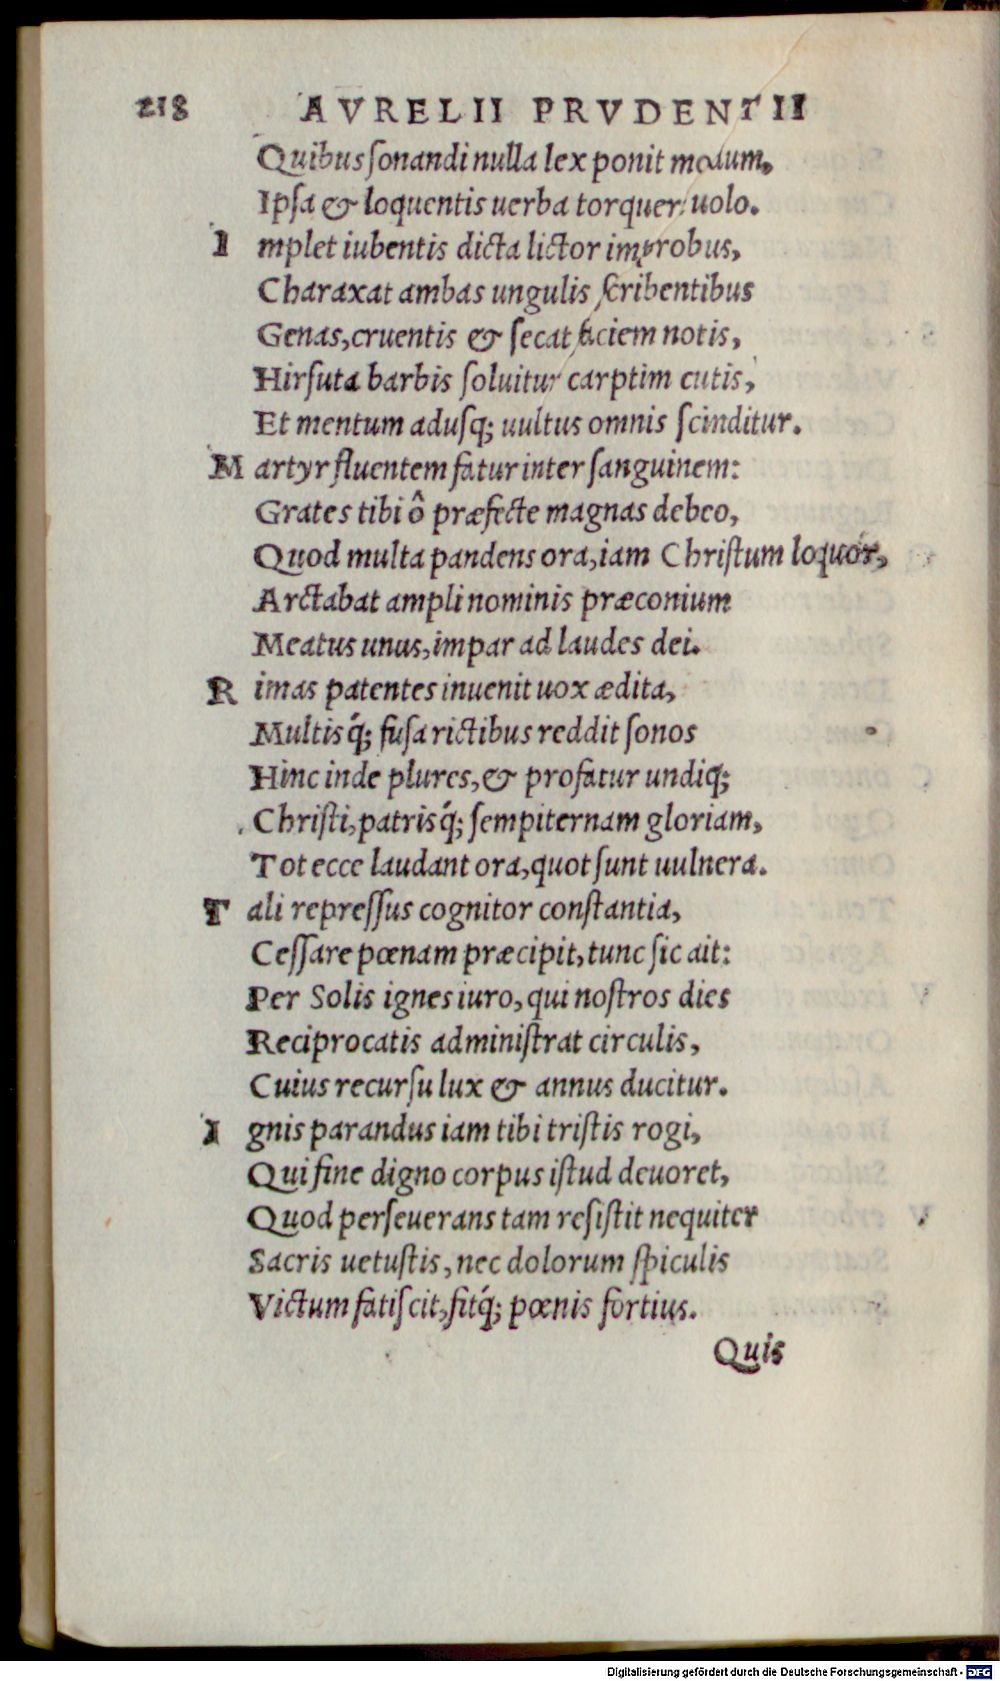 218 AVRELII PRVDENTII
Quibus sonandi nulla lex ponit modum,
Ipsa & loquentis uerba torqueri uolo.
I mplet iubentis dicta lictor improbus,
Charaxat ambas ungulis scribentibus
Genas, cruentis & secat faciem notis,
Hirsuta barbis soluitur carptim cutis,
Et mentum adusq; uultus omnis scinditur.
M artyr fluentem fatur inter sanguinem:
Grates tibi ô præfecte magnas debeo,
Quod multa pandens ora, iam Christum loquor,
Arctabat ampli nominis præconium
Meatus unus, impar ad laudes dei.
R imas patentes inuenit uox ædita,
Multisq́; fusa rictibus reddit sonos
Hinc inde plures, & profatur undiq;
Christi, patrisq́; sempiternam gloriam,
Tot ecce laudant ora, quot sunt uulnera.
T ali repressus cognitor constantia,
Cessare pœnam præcipit, tunc sic ait:
Per Solis ignes iuro, qui nostros dies
Reciprocatis administrat circulis,
Cuius recursu lux & annus ducitur.
I gnis parandus iam tibi tristis rogi,
Qui fine digno corpus istud deuoret,
Quod perseuerans tam resistit nequiter
Sacris uetustis, nec dolorum spiculis
Victum fatiscit, fitq́; pœnis fortius.
Quis
Digitalisierung gefördert durch die Deutsche Forschungsgemeinschaft - DFG